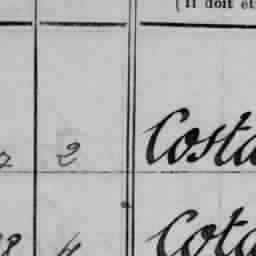 (Il doit êt
2 Costa
Cota